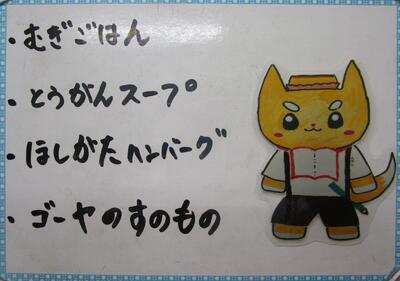 ・むぎごはん
・とうがんスープ
・ほしがたハンバーグ
・ゴーヤのすのもの